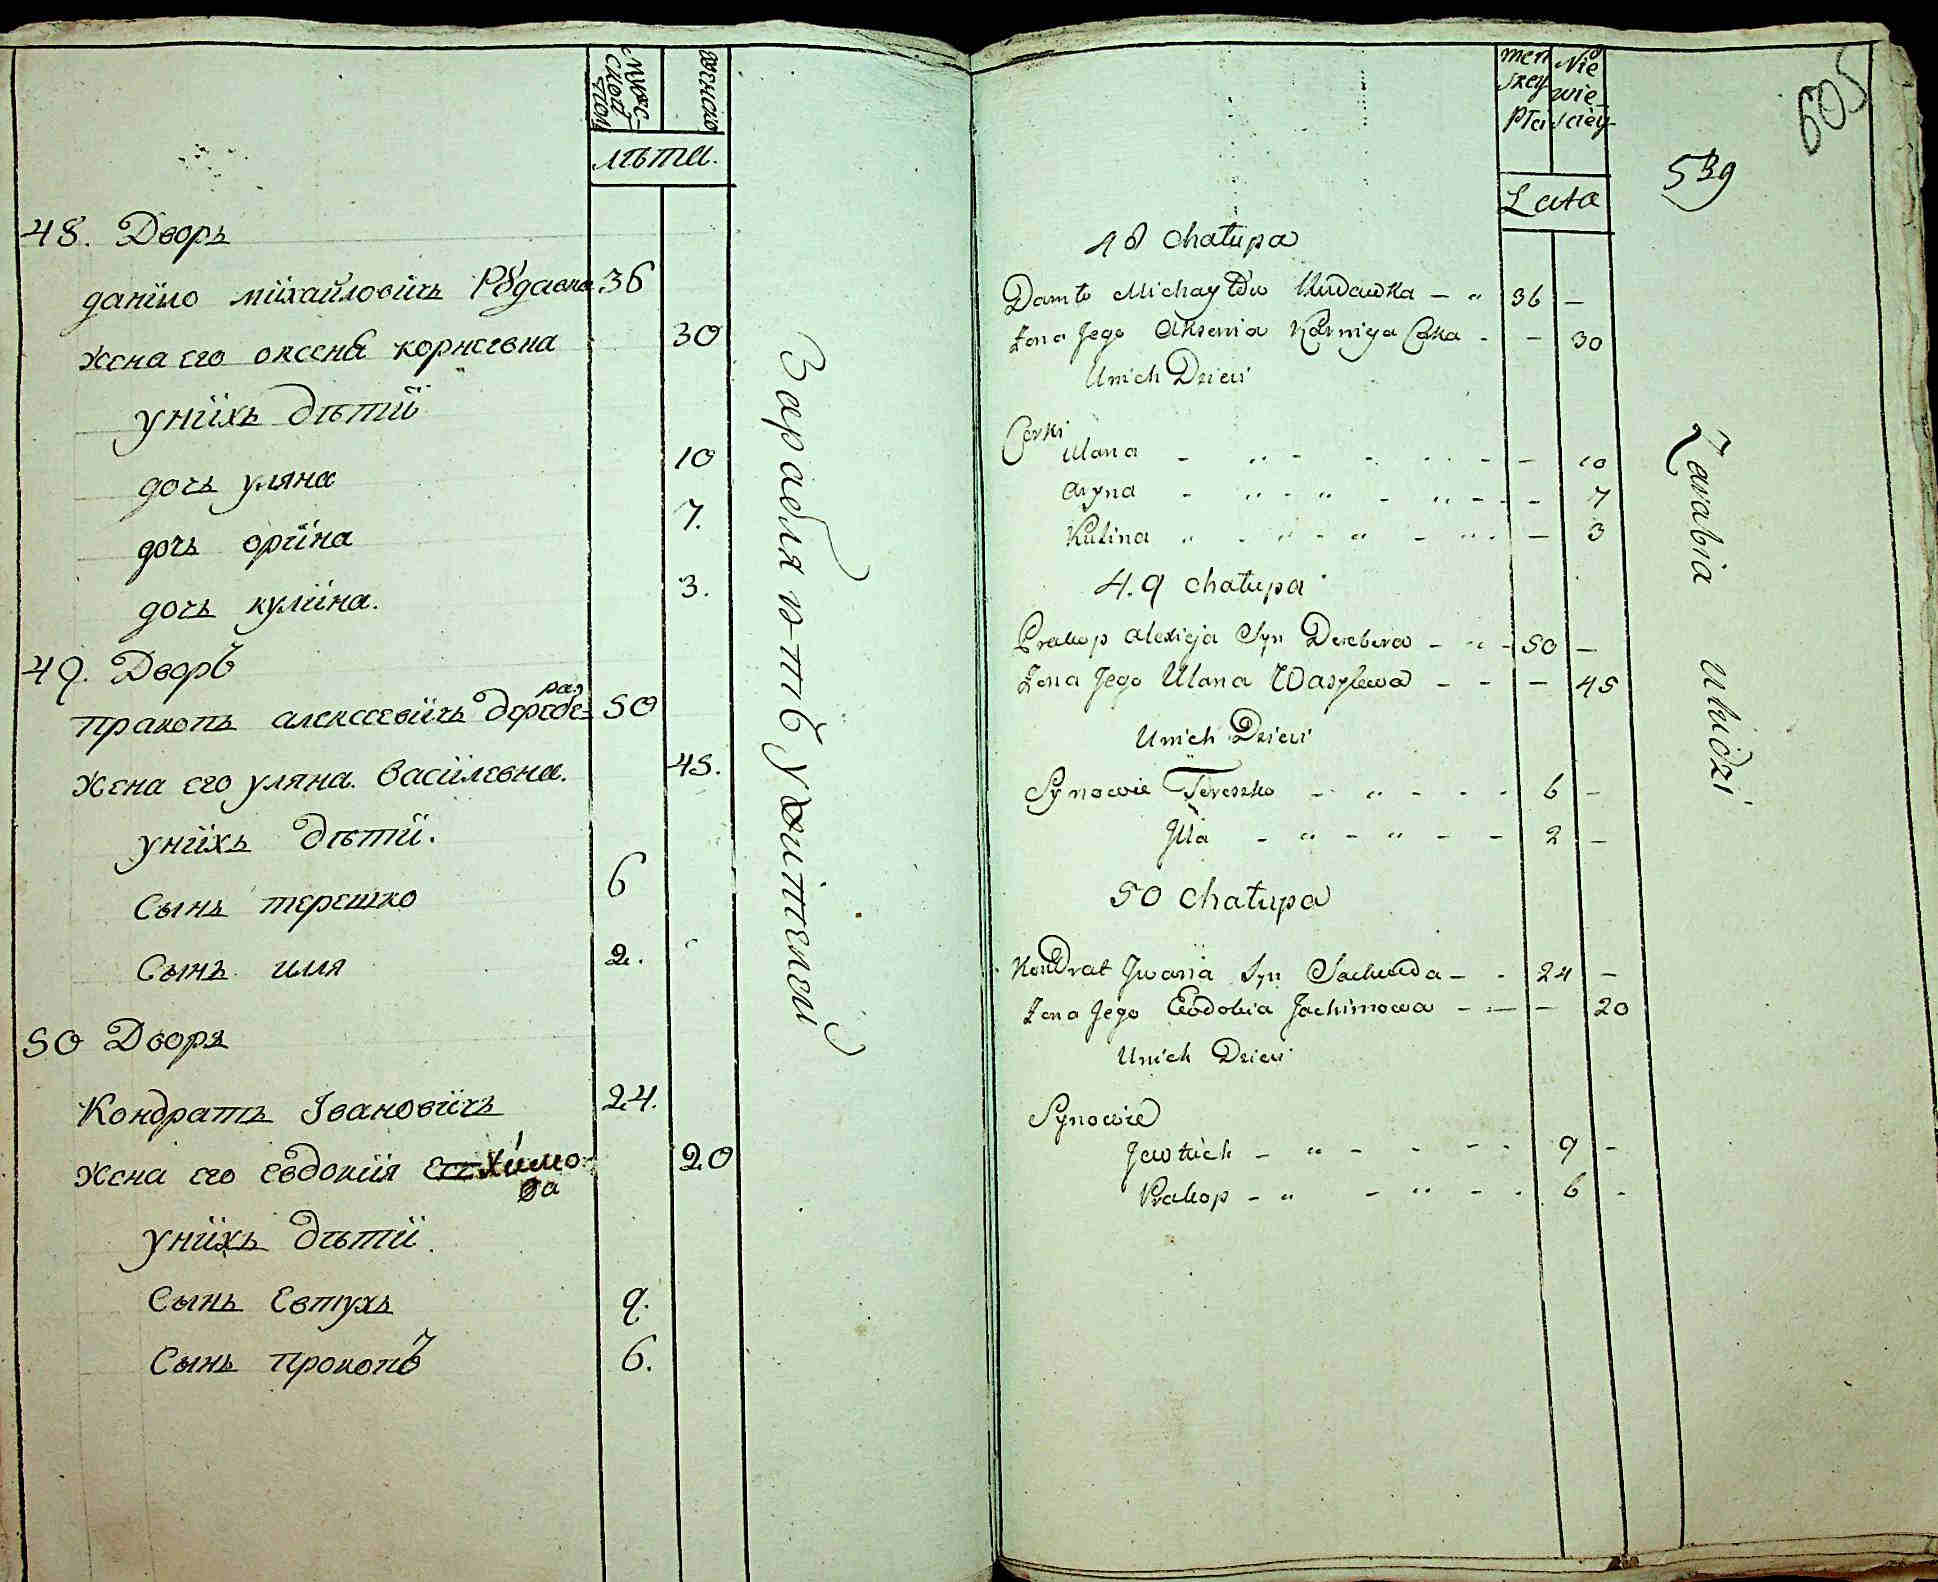 мужс-
кой
пол
женско
лѣта.
48. Дворъ
данило михайловичъ Рꙋдавка 36
жена его оксена корнеевна 30
унихъ дѣти
дочь уляна 10
дочь орина 7.
дочь кулина. 3.
49. Дворъ
пракопъ алексеевичъ деребе- 50
рая
жена его уляна василевна. 45.
унихъ дѣти.
Сынъ терешко 6
Сынъ илля 2.
50 Дворъ
Кондратъ Івановичъ 24.
жена его евдокия химо 20
ва
унихъ дѣти
Сынъ Евтухъ 9.
Сынъ прокопъ 6.
Зарабляютъ у жителей
men
skey
Płci
Nie
wie
sciey
Lata
539
605
48 Chałupa
Daniło Michayłów Rudawka - " 36 -
Żona Jego Aksenia Karnieja Cka - - 30
Unich Dzieci
Corki
Ulana - " - - " - - 10
Aryna - " - " - " - - 7
Kulina " - " - " - " - - 3
4.9 Chałupa
Prakop Alexieja Syn Derebera - " - 50 -
Żona Jego Ulana Wasylewa - - - 45
Unich Dzieci
Synowie Tereszko - " - - - 6 -
Jlla - " - " - - 2 -
50 Chałupa
Kondrat Jwana Syn - - 24 -
Żona Jego Ewdokia Jachimowa - - - 20
Unich Dzieci
Synowie
Jewtuch - " - - - - 9 -
Prakop - " - " - - 6 -
Zarabia u ludzi